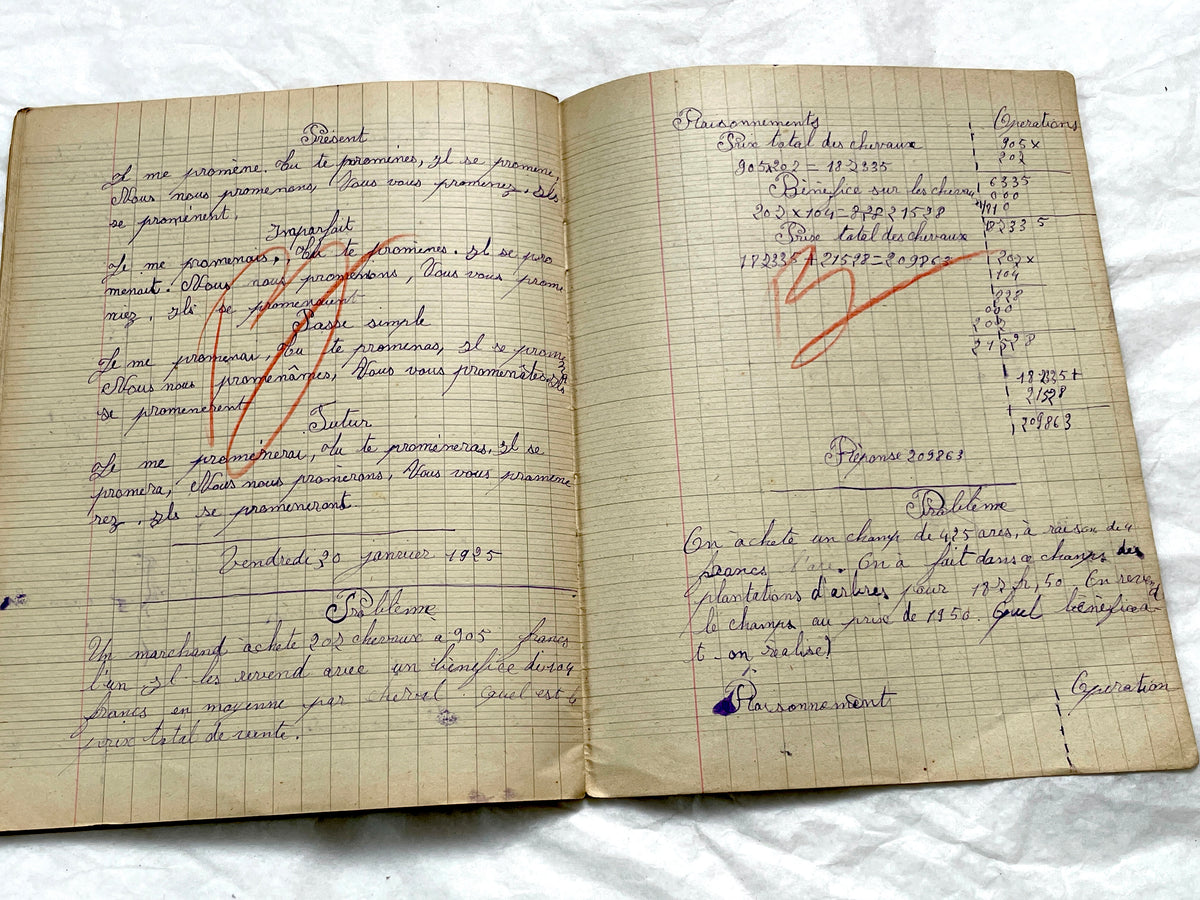 Présent
Je me promène. Tu te promènes, Il se promène,
Nous nous promenons, Vous vous promenez. Ils
se promènent.
Imparfait
Je me promenais, Tu te promenes. Il se pro
menait. Nous nous promenons, Vous vous prome
niez. Ils se promenaient
Passe simple
Je me promenai, Tu te promenas, Il se promena
Nous nous promenâmes, Vous vous promenâtes. Ils
se promenerent
Futur
Je me promènerai, Tu te promèneras. Il se
promera, Nous nous promèrons, Vous vous promene
rez. Ils se promeneront.
Vendredi 30 janvier 1925
Problème
Un marchand àchete 202 chevaux a 905 francs
l'un. Il les revend avec un bénéfice de 104
francs en moyenne par cheval. Quel est le
prix total de vente.
Raisonnements
Prix total des chevaux
905x202 = 182335
Bénéfice sur les chevau
202 x 104 = 21528
Prix total des chevaux
182335 + 21528 = 209863
Réponse 209863
Operations
905 x
202
6335
000
1810
182335
202 x
104
828
000
202
21528
182335 +
21528
209863
Problème
On àchete un champ de 425 ares, à raison de 4
francs l'are. On à fait dans ce champs des
plantations d'arbres pour 182 f, 50. On revend
le champs au prix de 1950. Quel bénéfice a-
t-on réalisé?
Raisonnement
Operation